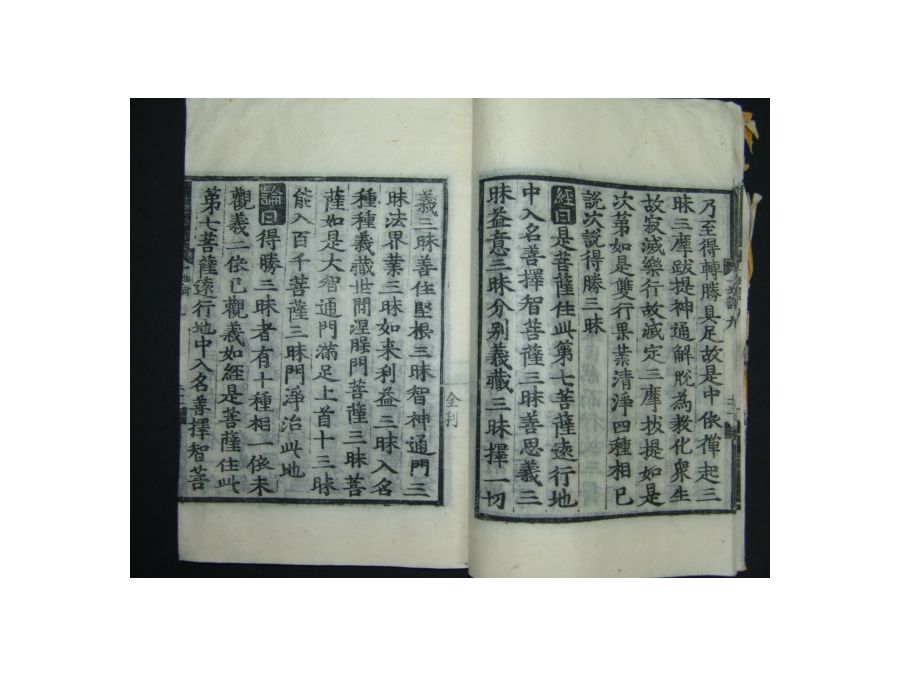 乃至得轉勝具足故是中依禪起三
昧三摩跋提神通解脫為教化衆生
故寂滅樂行故滅定三摩拔提如是
次第如是雙行果業清淨四種相已
說次說得勝三昧
經曰是菩薩住此第七菩薩遠行地
中入名善擇智菩薩三昧善思義三
昧益意三昧分別義藏三昧擇一切
全刊
義三昧善住堅根三昧智神通門三
昧法界業三昧如來利益三昧入名
種種義藏世間涅槃門菩薩三昧菩
薩如是大智通門滿足上首十三昧
能入百千菩薩三昧門淨治此地
論曰得勝三昧者有十種相一依未
觀義二依已觀義如經是菩薩住此
第七菩薩遠行地中入名善擇智菩